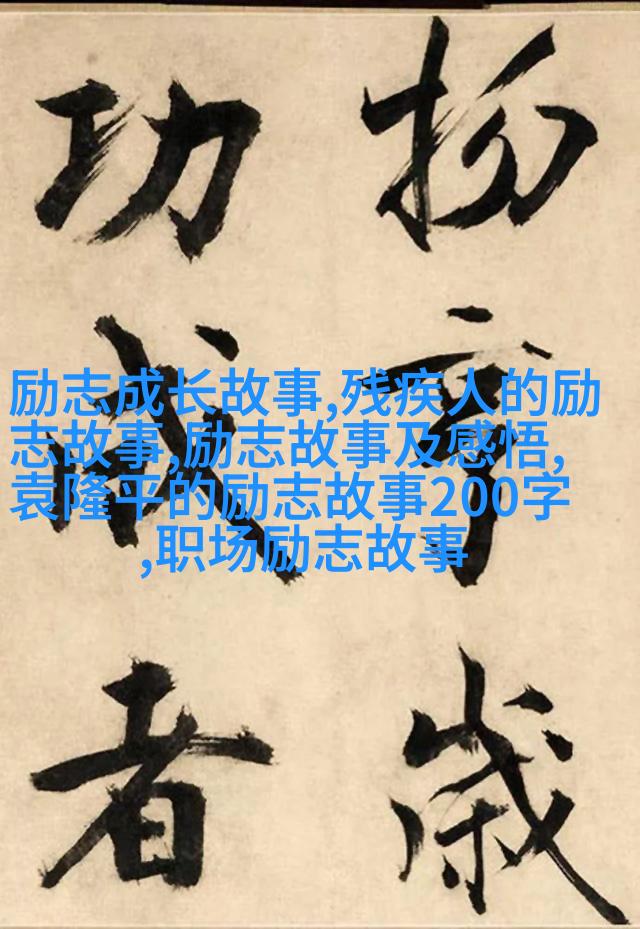 物亨歲
功成者
励志成长故事,残疾人的励
志故事,励志故事及感悟,
袁隆平的励志故事200字
,职场励志故事